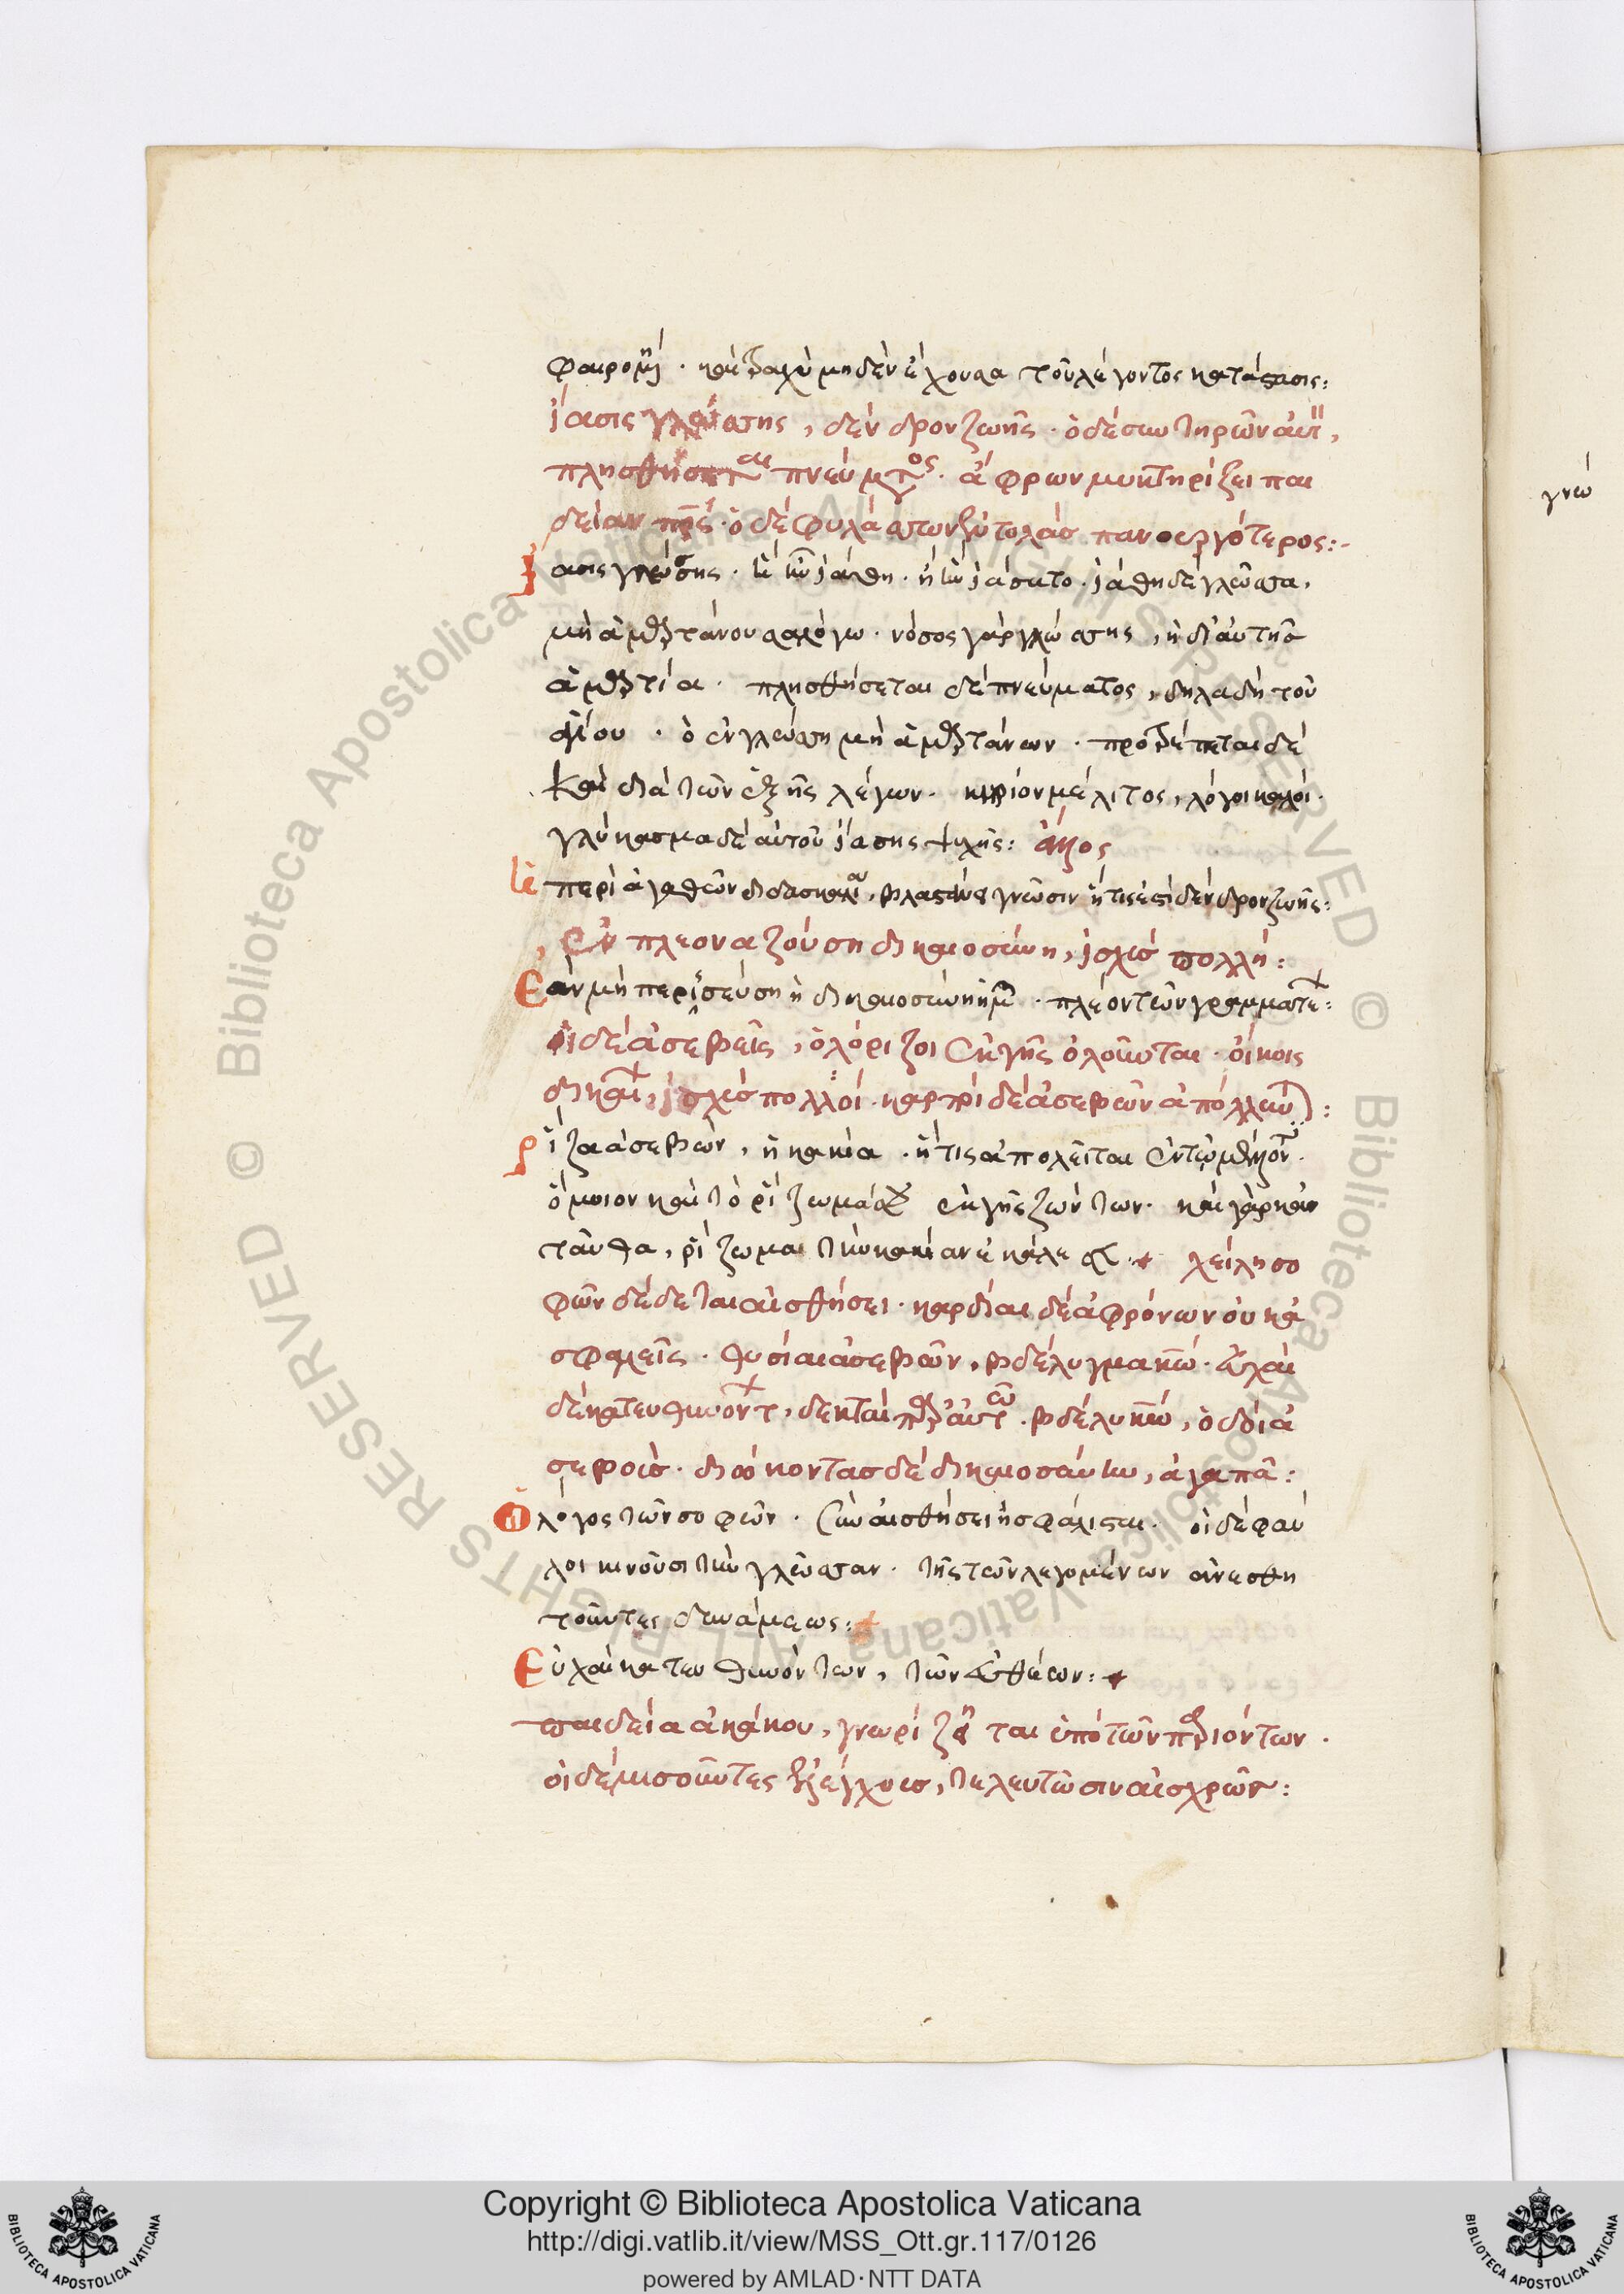 φαιρομένη · καὶ τραχὺ μηδὲν ἔχουσα τοῦ λέγοντος κατάστασις:
ἴασις γλώσσης, δένδρον ζωῆς · ὁ δὲ συντηρῶν αὐτὴν,
πλησθήσεται πνεύματος · ἄφρων μυκτηρίζει παι
δείαν πρς · ὁ δὲ φυλάσσων ἐντολὰσ πανουργότερος:-
Ἴασις γλώσσης · ἰάθη · ἰάσατο · ἰάθη δὲ γλῶσσα,
μὴ ἁμαρτάνουσα λόγω · νόσος γὰρ γλώσσης, ἡ δι' αὐτῆσ
ἁμαρτία · πλησθήσεται δὲ πνεύματος, δηλαδὴ τοῦ
ἁγίου · ὁ ἐν γλώσση μὴ ἁμαρτάνων · προτρέπεται δὲ
καὶ διὰ τῶν ἑξῆς λέγων · κηρίον μέλιτος, λόγοι καλοί ·
γλύκασμα δὲ αὐτοῦ ἴασης ψυχῆς:
περὶ ἀγαθῶν διδασκαλι, βλαστὺς γνῶσιν ἥτις ἐστὶ δένδρον ζωῆς:
Ἐν πλεοναζούση δικαιοσύνη, ἰσχὺσ πολλή:
Ἐὰν μὴ περισσεύση ἡ δικαιοσύνη ἡμῶν · πλέον τῶν γραμματέων:
οἱ δὲ ἀσεβεῖς, ὁλόριζοι ἐκ γῆς ὀλοῦνται · οἴκοις
δικαίων, ἰσχὺσ πολλοί · καρποὶ δὲ ἀσεβῶν ἀπόλλυνται:
Ρίζα ἀσεβῶν, ἡ κακία · ἥτις ἀπολεῖται ἐν τῶ μέλλοντι ·
ὅμοιον καὶ τὸ ῥίζωμά σου ἐκ γῆς ζώντων · καὶ γὰρ κἀν
ταῦθα, ῥίζωμα τὴν κακίαν ἐκάλεσε · χείλη σο
φῶν δέδεται αἰσθήσει · καρδίαι δὲ ἀφρόνων οὐκ ἀ
σφαλεῖς · θυσίαι ἀσεβῶν, βδέλυγμα κυρίω · εὐχαὶ
δὲ κατευθυνόντων, δεκταὶ παρ' αὐτῶ · βδέλυ κυρίω, ὁδοὶ ἀ
σεβοῖσ · διώκοντασ δὲ δικαιοσύνην, ἀγαπᾶ:
Ὁ λόγος τῶν σοφῶν · σὺν αἰσθήσει ἠσφάλισται · οἱ δὲ φαῦ
λοι κινοῦσι τὴν γλῶσσαν · τῆς τῶν λεγομένων ἀνεσθη
τοῦντες δυνάμεως:
Εὐχαὶ κατευθυνόντων, τῶν εὐθέων:
παιδεία ἀκάκου, γνωρίζεται ὑπὸ τῶν παριόντων ·
οἱ δὲ μισοῦντες ἐλέγχουσ, τελευτῶσιν αἰσχρῶς:
γνώ
Copyright © Biblioteca Apostolica Vaticana
http://digi.vatlib.it/view/MSS_Ott.gr.117/0126
powered by AMLAD·NTT DATA
BIBLIOTECA APOSTOLICA VATICANA
BIBLIOTECA APOSTOLICA VATICANA
© Biblioteca Apostolica Vaticana ALL RIGHTS RESERVED © Biblioteca Apostolica Vaticana ALL RIGHTS RESERVED